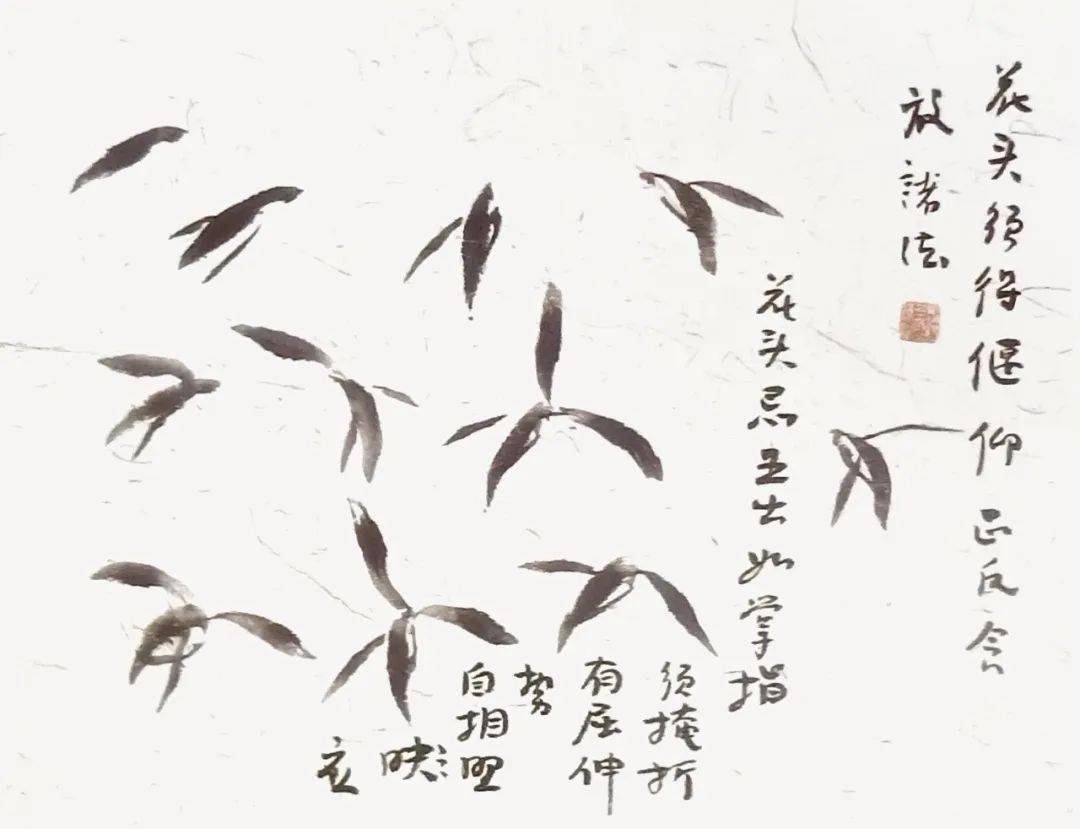 花头须得偃仰正反含
放諸法
花头忌五出如掌指
须掩折
有屈伸
势
自相照
映